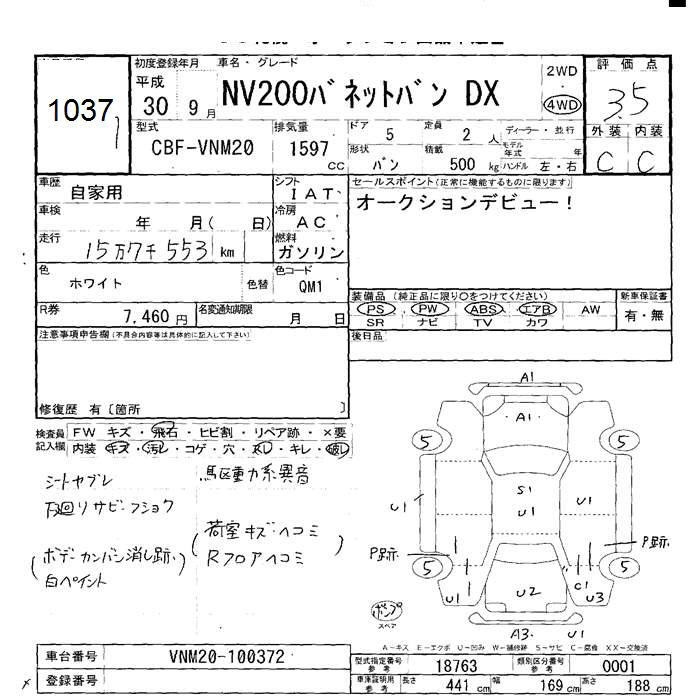 1037
初度登録年月 車名・グレード
平成
30 9月
NV200バネットバン DX
2WD
4WD
評価点
3.5
外装 内装
C C
型式
CBF-VNM20
排気量
1597 cc
ドア 5
定員 2 人
ディーラー・並行
モデル年式 年
形状 バン
積載 500 kg
ハンドル 左・右
車歴 自家用
シフト IAT
車検 年 月( 日)
冷房 AC
走行 15万7千553 km
燃料 ガソリン
色 ホワイト 色替
色コード QM1
R券 7,460円
名変通知期限 月 日
セールスポイント(正常に機能するものに限ります)
オークションデビュー!
装備品(純正品に限り○をつけてください)
PS PW ABS エアB AW
SR ナビ TV カワ
新車保証書
有・無
後日品
注意事項申告欄(不具合内容等は具体的に記入して下さい)
修復歴 有〔箇所 〕
検査員記入欄
FW キズ・飛石・ヒビ割・リペア跡・×要
内装 キズ・汚レ・コゲ・穴・スレ・キレ・破レ
シートヤブレ
下回リサビ・フショク
(ボデーカンバン消し跡、
白ペイント
駆動系異音
(荷室キズ・ヘコミ)
Rフロアヘコミ
A1
A1
5 5
S1
U1
U1 U1
P跡 P跡
5 5
U1 U2 C1 U3
ポンプ
スペア
A3 U1
A-キズ E-エクボ U-凹み W-補修跡 S-サビ C-腐食 XX-交換済
車台番号 VNM20-100372
登録番号
型式指定番号 参考 18763
類別区分番号 参考 0001
車庫証明用 参考 長さ 441 cm 幅 169 cm 高さ 188 cm